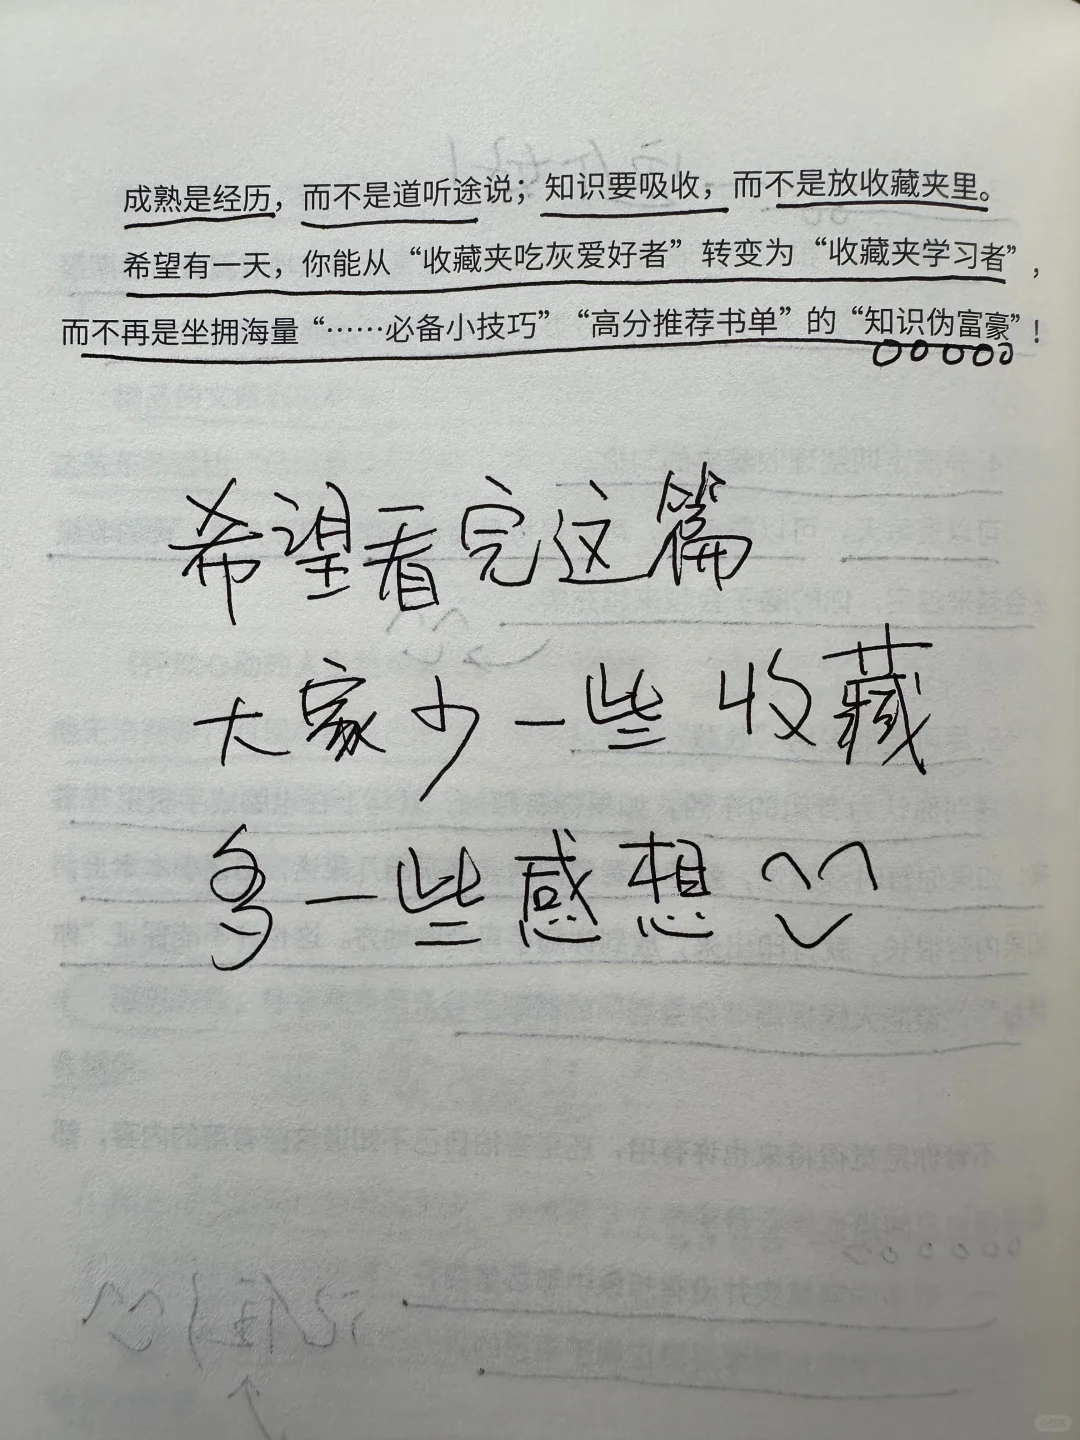 成熟是经历，而不是道听途说；知识要吸收，而不是放收藏夹里。
希望有一天，你能从“收藏夹吃灰爱好者”转变为“收藏夹学习者”，
而不再是坐拥海量“……必备小技巧”“高分推荐书单”的“知识伪富豪”！
希望看完这篇
大家少一些收藏
多一些感想